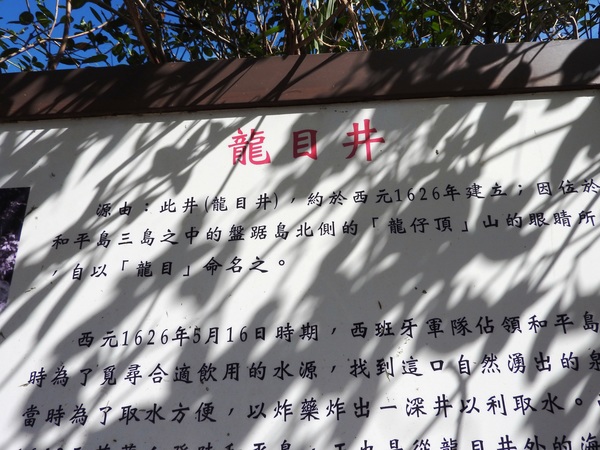 龍目井
源由：此井(龍目井)，約於西元1626年建立；因位於
和平島三島之中的盤踞島北側的「龍仔頂」山的眼睛所
，自以「龍目」命名之。
西元1626年5月16日時期，西班牙軍隊佔領和平島
時為了覓尋合適飲用的水源，找到這口自然湧出的泉
當時為了取水方便，以炸藥炸出一深井以利取水。
和平島，正也是從龍目井外的海